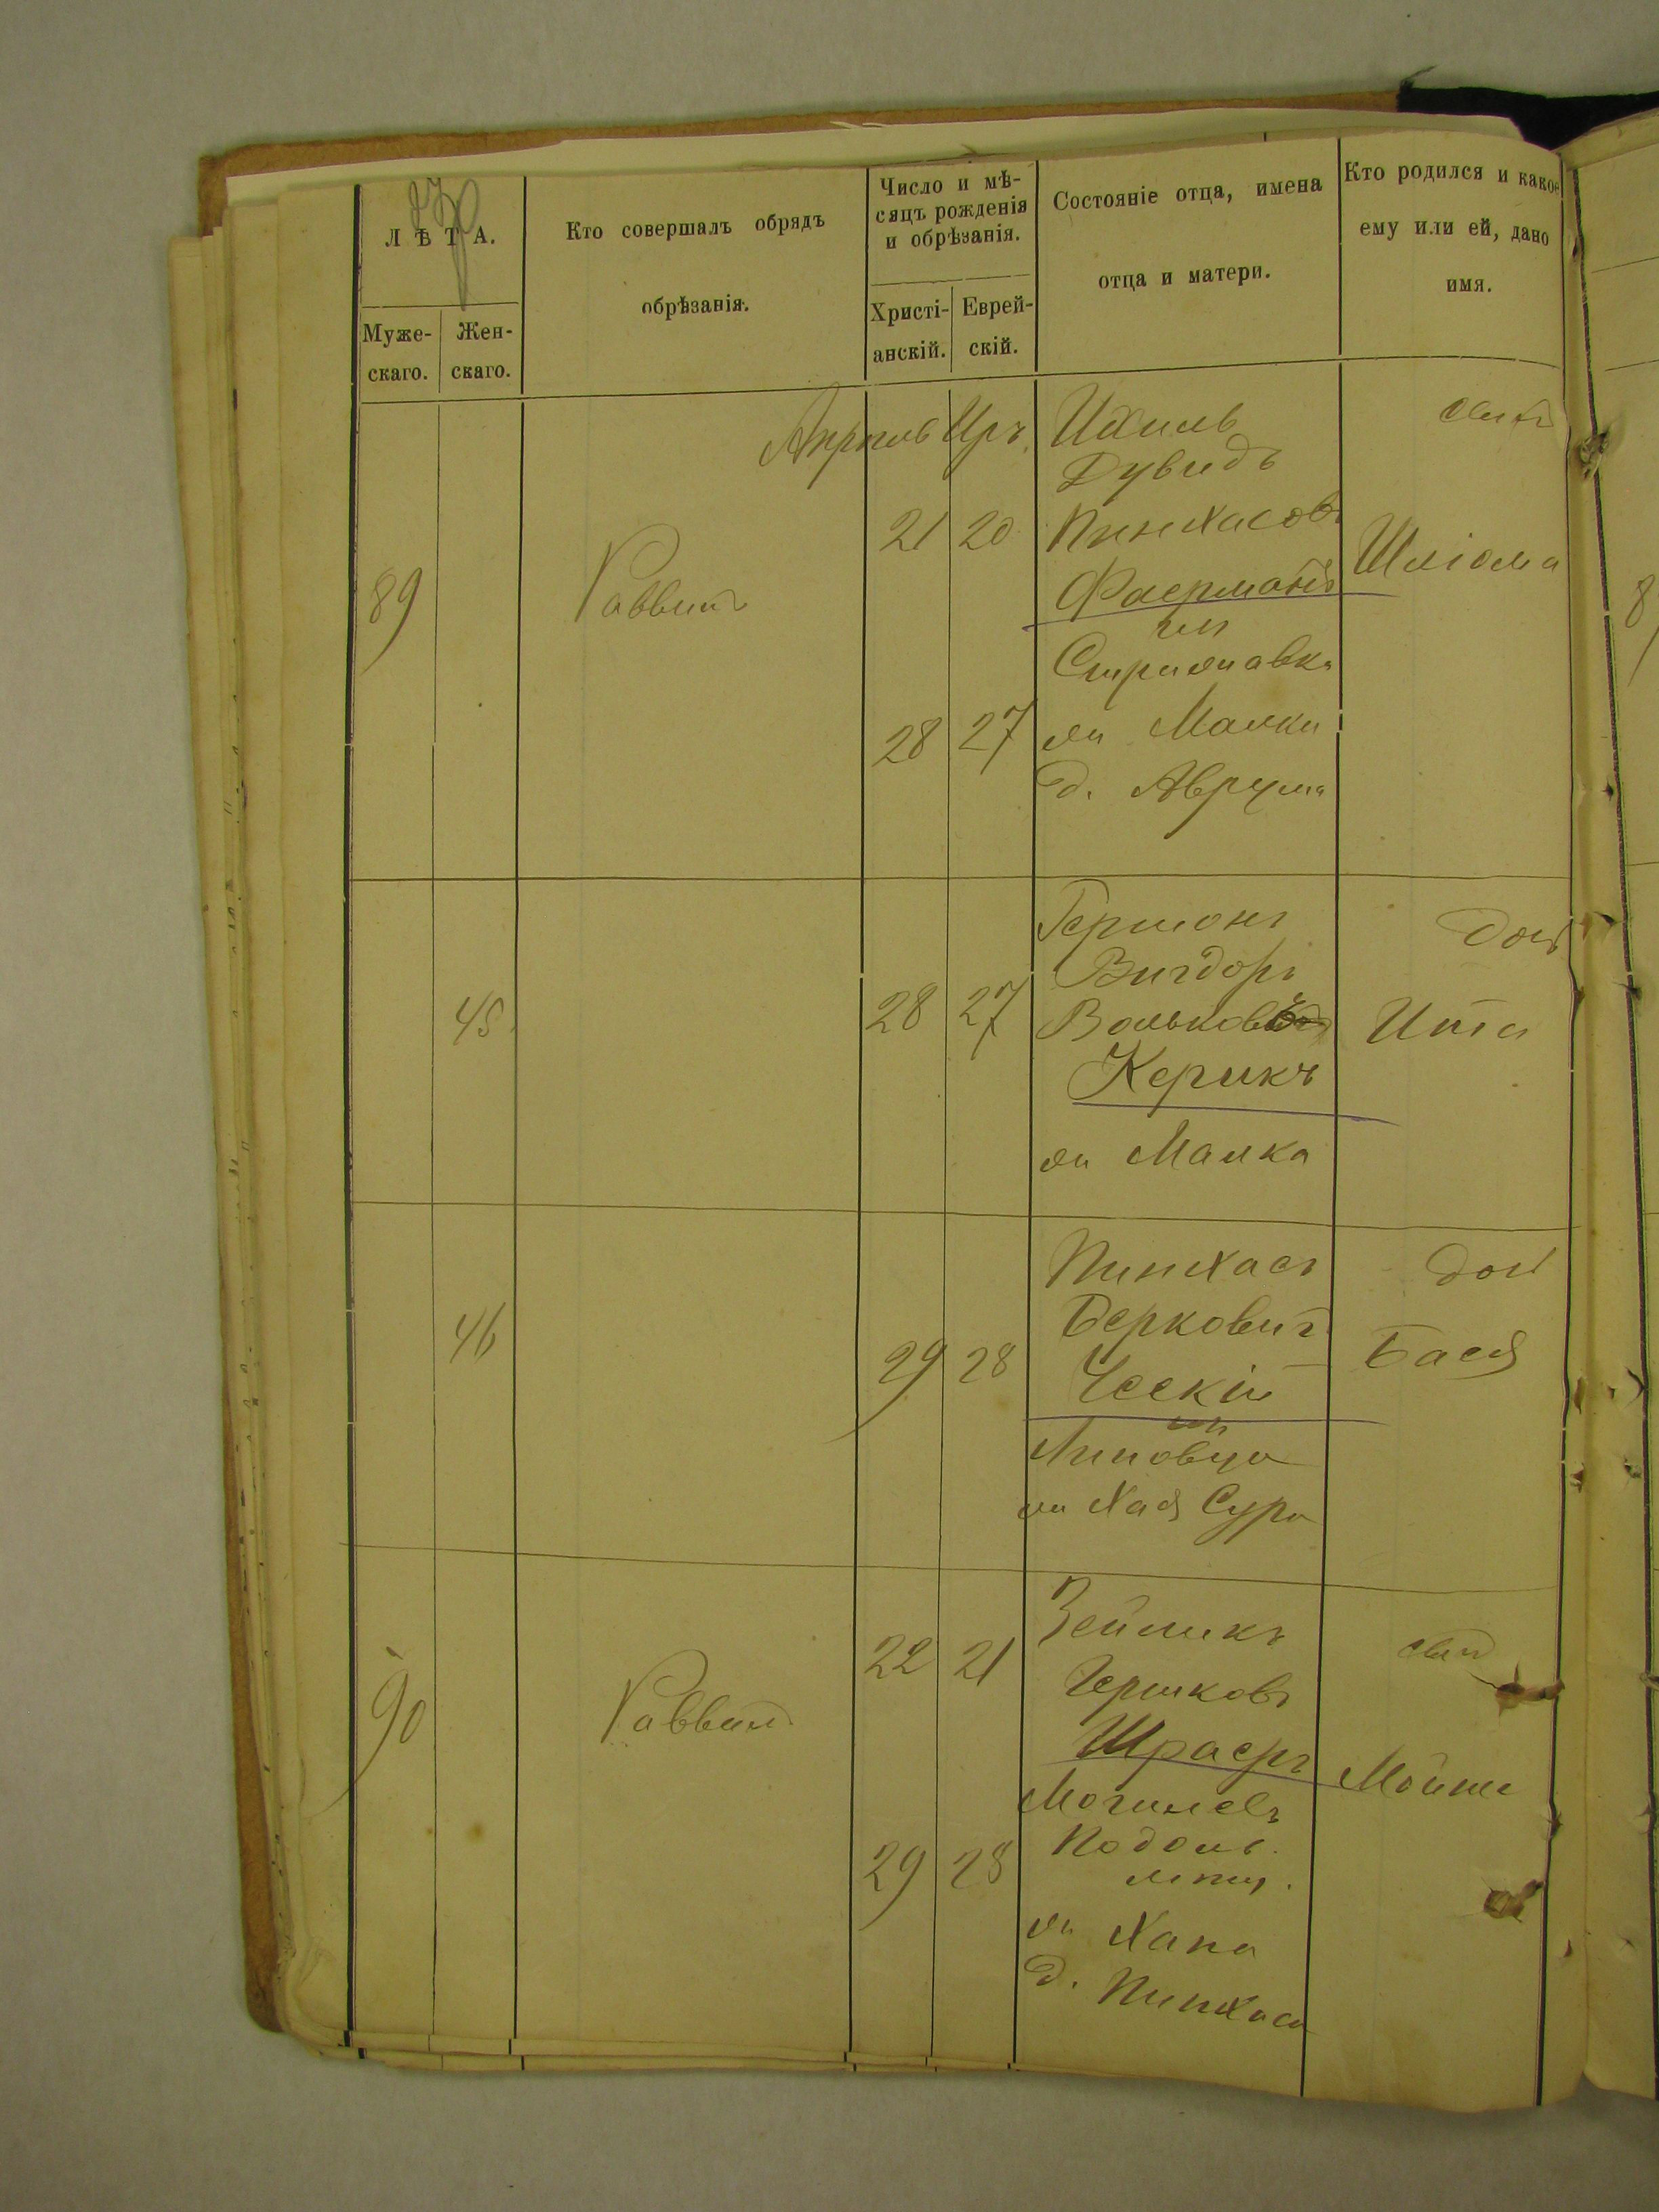 ЛѢТА.
Муже-
скаго.
Жен-
скаго.
Кто совершалъ обрядъ
обрѣзанія.
Число и мѣ-
сяцъ рожденія
и обрѣзанія.
Христі-
анскій.
Еврей-
скій.
Состояніе отца, имена
отца и матери.
Кто родился и какое
ему или ей, дано
имя.
Апрель Иръ
89
Раввинъ
21 20
28 27
Ихиль
Дувидъ
Пинхасовъ
Фаерманъ
изъ
Стрижавка
м Малки
д. Аврума
сынъ
Шліома
45
28 27
Гершонъ
Вигдоръ
Вольковъ
Керикъ
м Малка
доч
Ита
46
29 28
Пинхасъ
Берковичъ
Ческій
изъ
Липовца
м Хая Сура
доч
Бася
90
Раввинъ
22 21
29 28
Зейликъ
Гершковъ
Шраеръ
Могилевъ
Подоль.
м Хана
д. Пинхаса
сынъ
Мойше